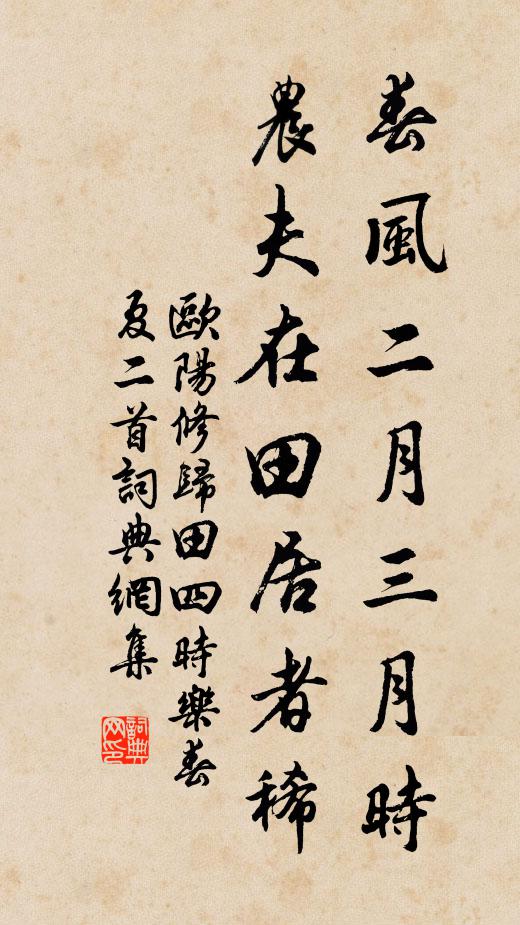 春風二月三月時
農夫在田居者稀
歐陽修歸田四時樂春
夏二首詞典網集
詞典網印